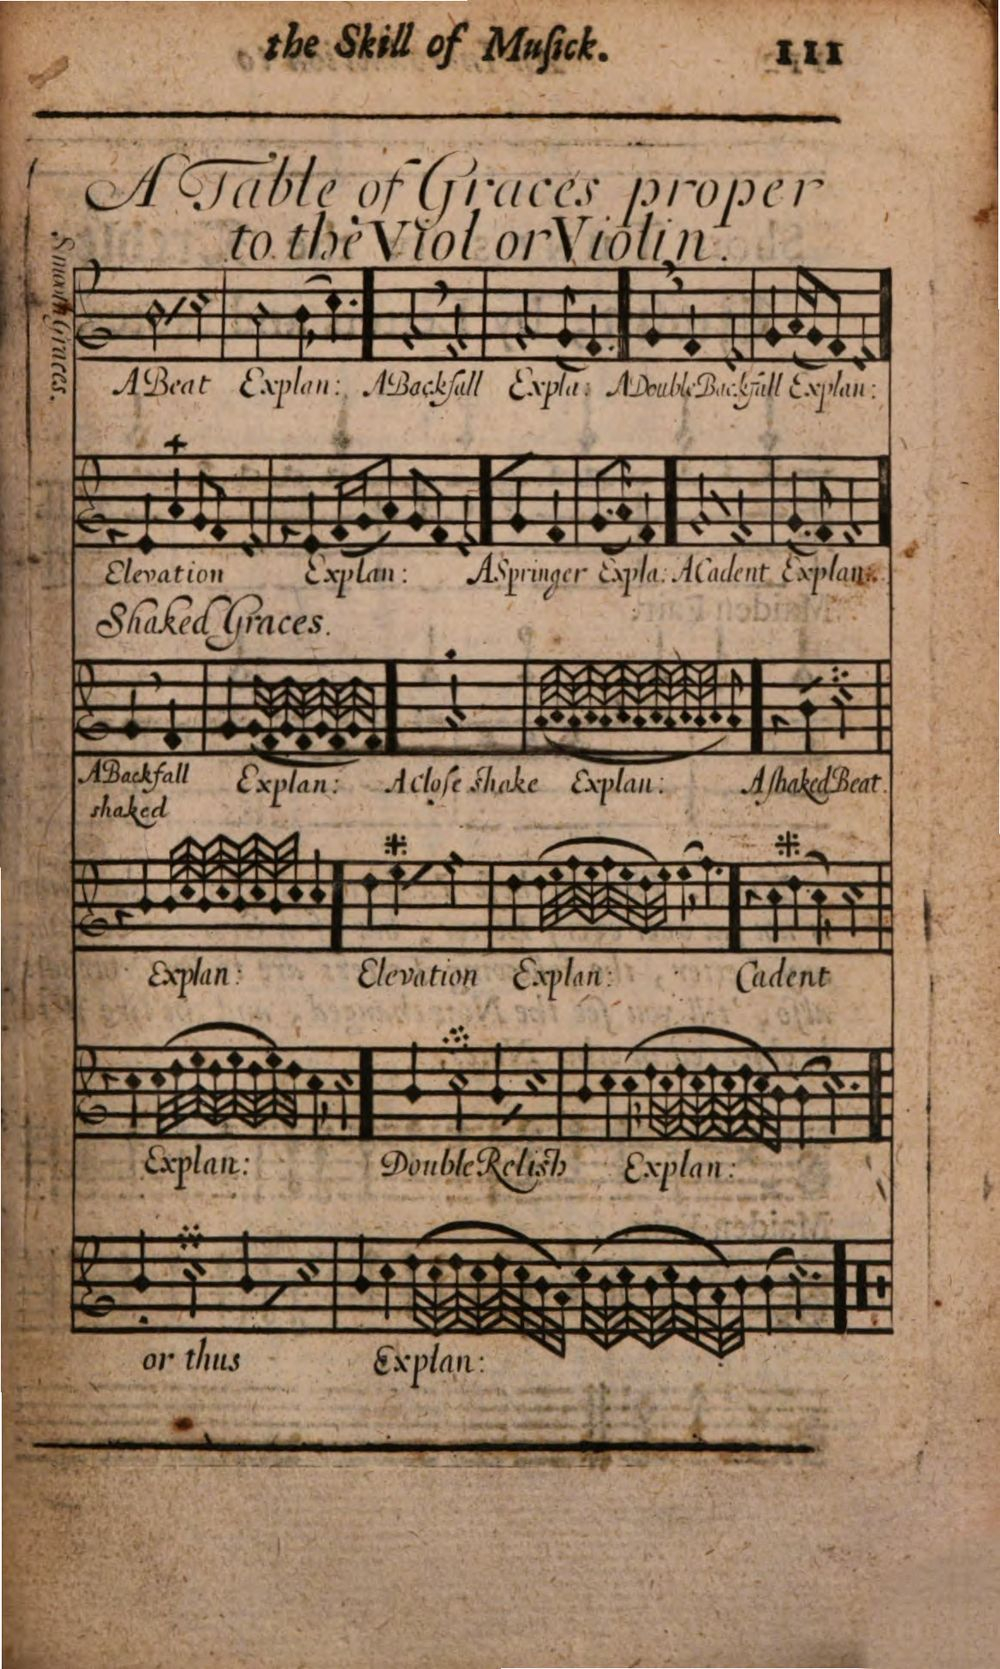 the Skill of Muſick.
111
A Table of Graces proper
to the Viol or Violin.
Smooth Graces.
A Beat Explan: A Backfall Expla: A Double Backfall Explan:
Elevation Explan: A Springer Expla: A Cadent Explan:
Shaked Graces.
A Backfall
shaked
Explan: A Cloſe shake Explan: A ſhaked Beat.
Explan: Elevation Explan: Cadent
Explan: Double Relish Explan:
or thus Explan: